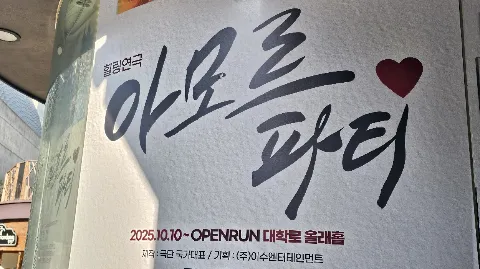 힐링연극
아모르
파티
2025.10.10~ OPENRUN 대학로 올래홀
제작 : 극단 국가대표 / 기획 : (주)이수엔터테인먼트